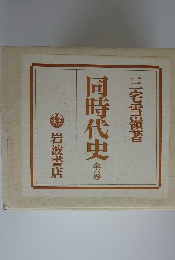 三宅雪嶺著
同時代史 全六巻
岩波書店